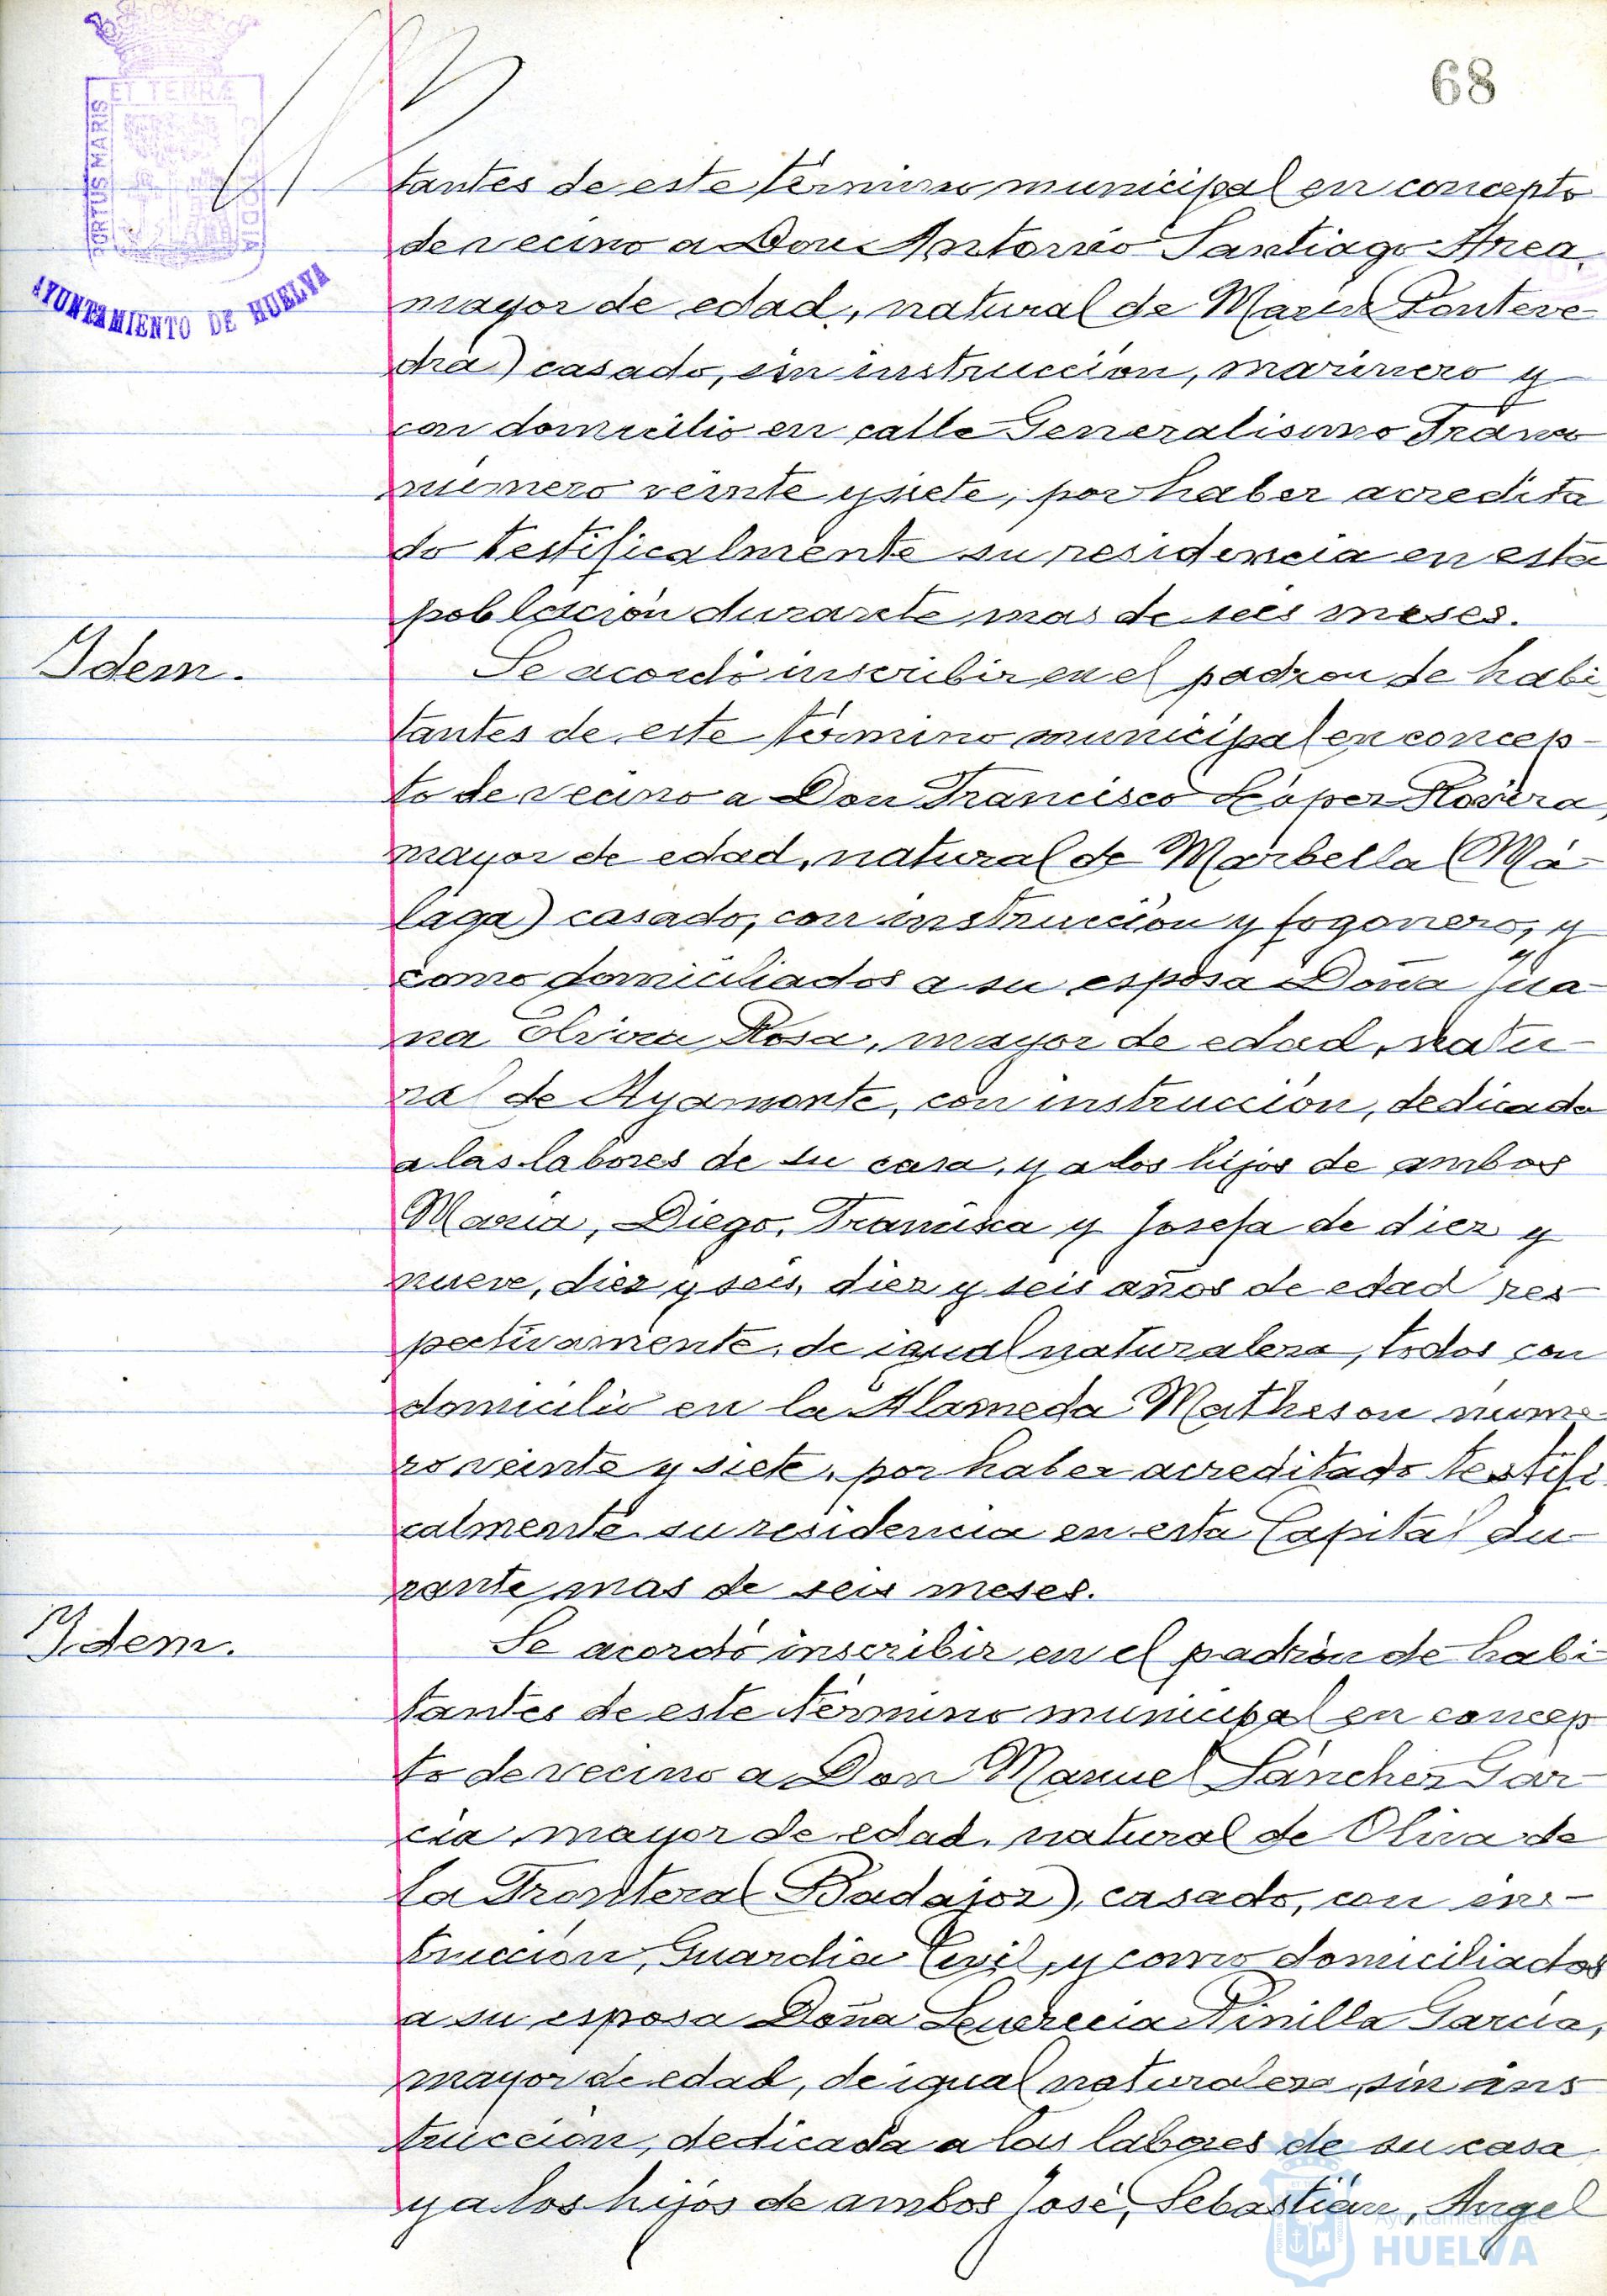 68
ET TERRÆ
PORTUS MARIS
CUSTODIA
AYUNTAMIENTO DE HUELVA
tantes de este término municipal en concepto
de vecino a Don Antonio Santiago Area,
mayor de edad, natural de Marín (Ponteve-
dra) casado, sin instrucción, marinero y
con domicilio en calle Generalisimo Franco
número veinte y siete, por haber acredita
do testificalmente su residencia en esta
población durante mas de seis meses.
Idem.
Se acordó inscribir en el padron de habi
tantes de este término municipal en concep-
to de vecino a Don Francisco López Rovira,
mayor de edad, natural de Marbella (Má-
laga) casado, con instrucción y fogonero, y
como domiciliados a su esposa Doña Jua-
na Olivera Rosa, mayor de edad, natu-
ral de Ayamonte, con instrucción, dedicada
a las labores de su casa, y a los hijos de ambos
María, Diego, Francisca y Josefa de diez y
nueve, diez y seis, diez y seis años de edad res-
pectivamente, de igual naturaleza, todos con
domicilio en la Alameda Matheson núme-
ro veinte y siete, por haber acreditado testifi
calmente su residencia en esta Capital du-
rante mas de seis meses.
Idem.
Se acordó inscribir en el padrón de habi-
tantes de este término municipal en concep
to de vecino a Don Manuel Sánchez Gar-
cía, mayor de edad, natural de Oliva de
la Frontera (Badajoz), casado, con ins-
trucción, Guardia Civil, y como domiciliados
a su esposa Doña Lucrecia Pinilla García,
mayor de edad, de igual naturaleza, sin ins
trucción, dedicada a las labores de su casa
y a los hijos de ambos José, Sebastián, Angel
Ayuntamiento de
HUELVA